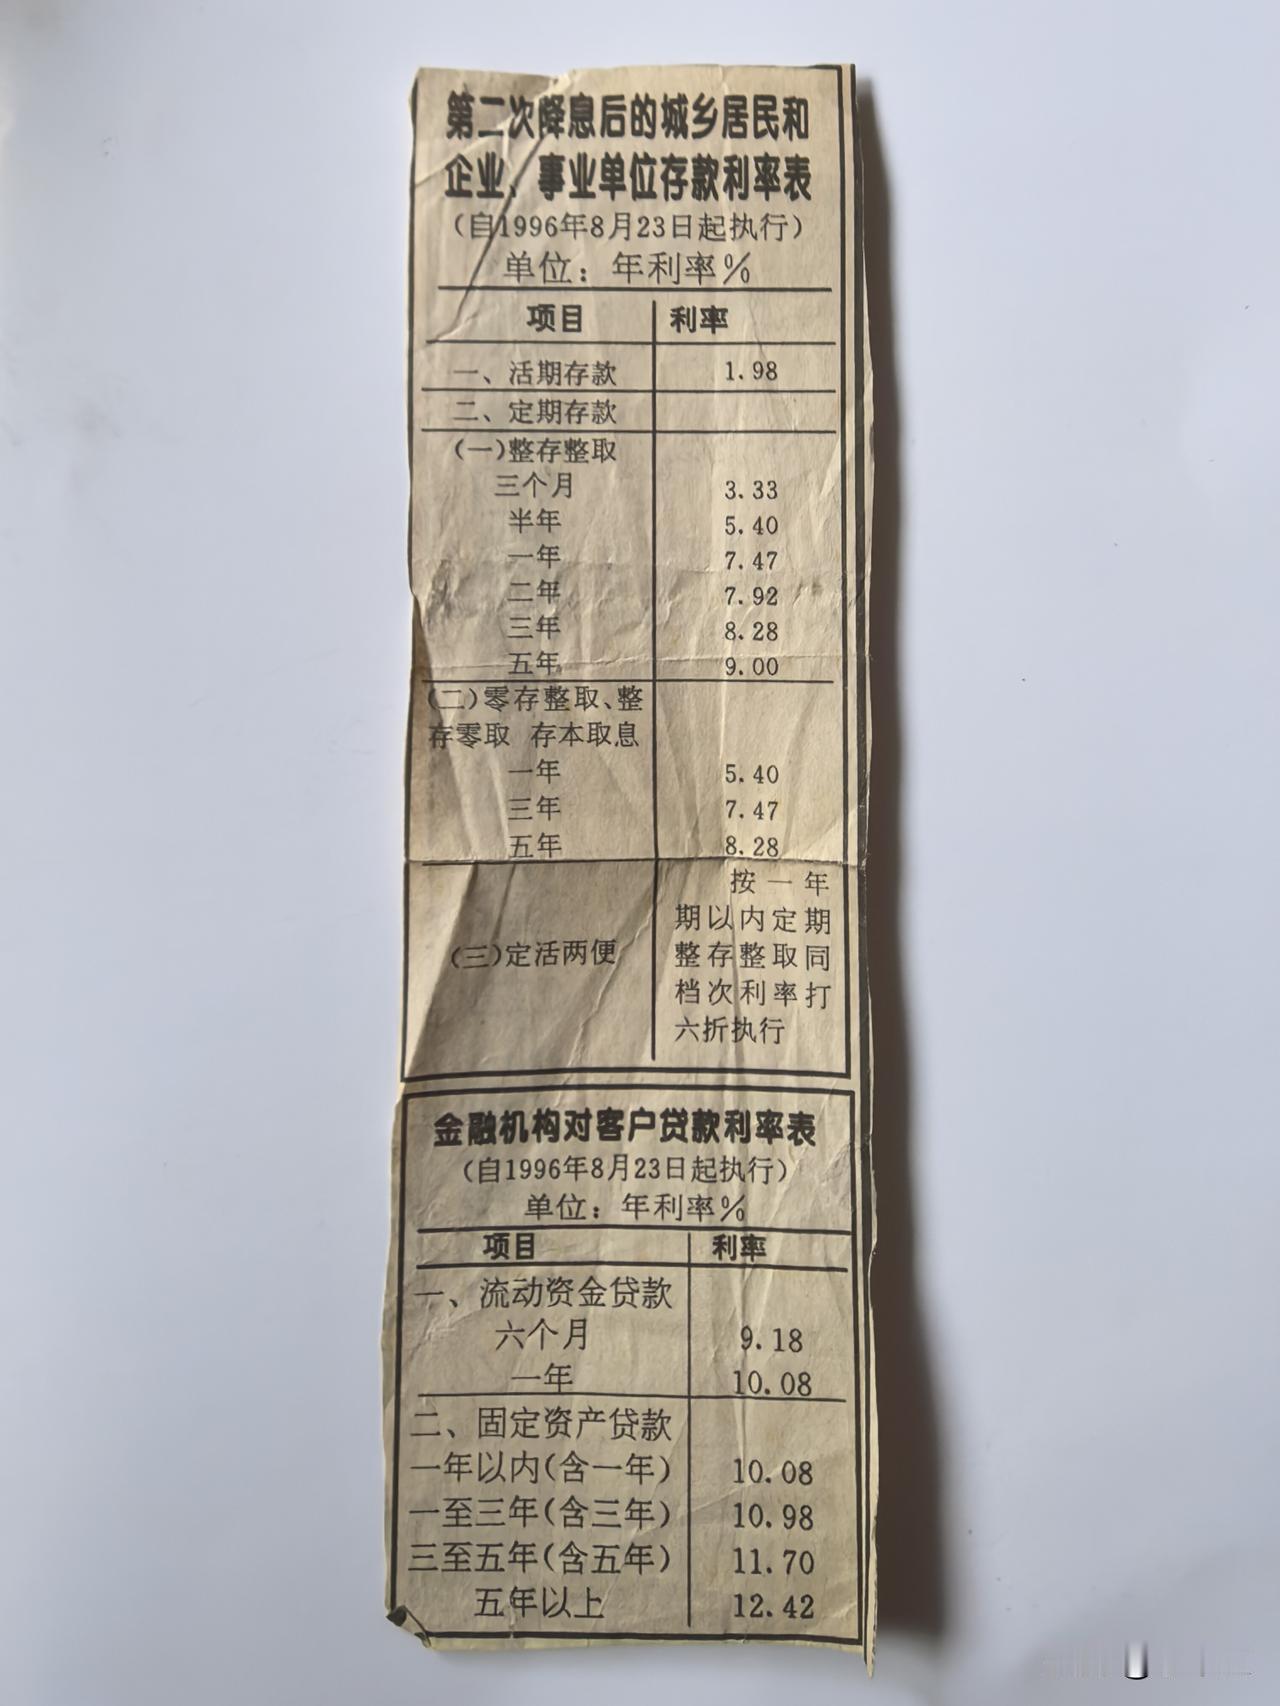 第二次降息后的城乡居民和
企业、事业单位存款利率表
(自1996年8月23日起执行)
单位：年利率%
项目 利率
一、活期存款 1.98
二、定期存款
(一)整存整取
三个月 3.33
半年 5.40
一年 7.47
二年 7.92
三年 8.28
五年 9.00
(二)零存整取、整
存零取 存本取息
一年 5.40
三年 7.47
五年 8.28
(三)定活两便
按一年
期以内定期
整存整取同
档次利率打
六折执行
金融机构对客户贷款利率表
(自1996年8月23日起执行)
单位：年利率%
项目 利率
一、流动资金贷款
六个月 9.18
一年 10.08
二、固定资产贷款
一年以内(含一年) 10.08
一至三年(含三年) 10.98
三至五年(含五年) 11.70
五年以上 12.42